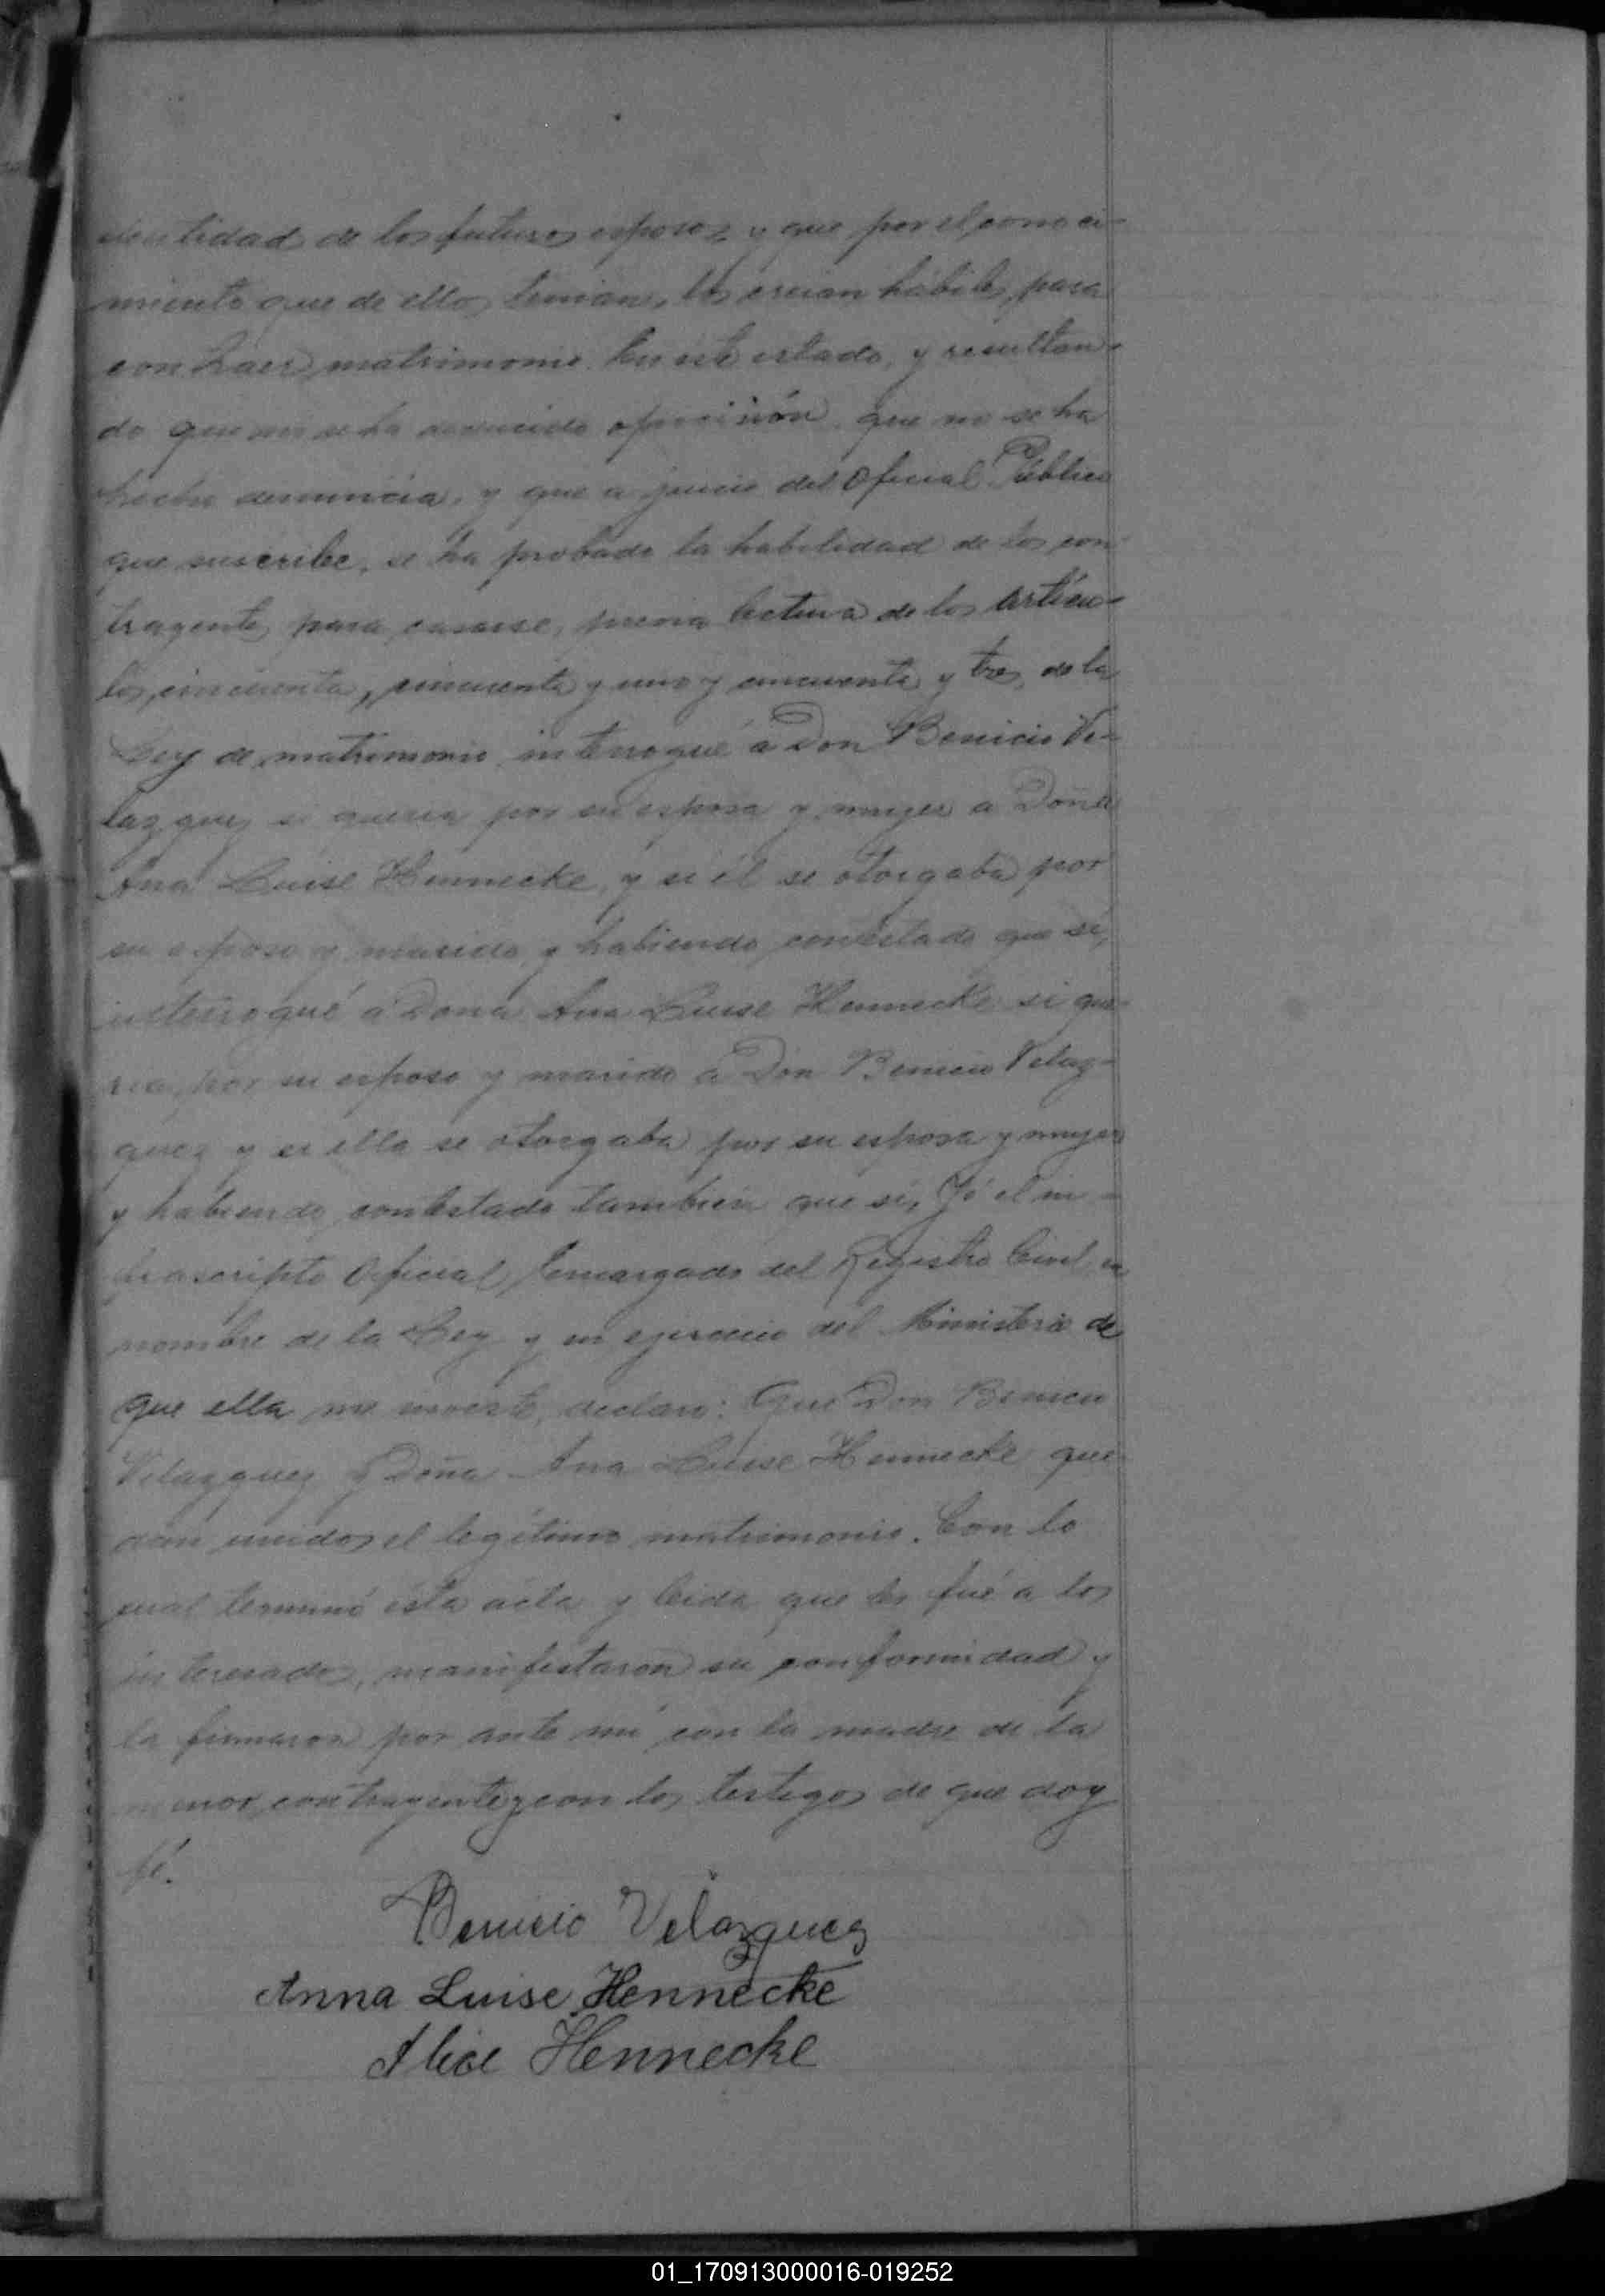 identidad de los futuros esposos y que por el conoci-
miento que de ellos tenian, los creian hábiles para
contraer matrimonio. En este estado, y resultan-
do que no se ha deducido oposición, que no se ha
hecho denuncia, y que a juicio del Oficial Público
que suscribe, se ha probado la habilidad de los con-
trayentes para casarse, previa lectura de los artícu-
los, cincuenta, cincuenta y uno y cincuenta y tres, de la
Ley de matrimonio, interrogué á Don Benicio Ve-
lazquez si queria por su esposa y mujer a Doña
Ana Luise Hennecke, y si él se otorgaba por
su esposo y marido, y habiendo contestado que sí,
interrogué á Doña Ana Luise Hennecke si que-
ria por su esposo y marido á Don Benicio Velaz-
quez y si ella se otorgaba por su esposa y mujer
y habiendo contestado tambien que sí, Yó el in-
frascripto Oficial Encargado del Registro Civil, en
nombre de la Ley y en ejercicio del Ministerio de
que ella me inviste, declaro: Que Don Benicio
Velazquez y Doña Ana Luise Hennecke que-
dan unidos el legítimo matrimonio. Con lo
cual terminó ésta acta y leida que les fué a los
interesados, manifestaron su conformidad y
la firmaron por ante mi con la madre de la
menor contrayente y con los testigos de que doy
fé.
Benicio Velazquez
Anna Luise Hennecke
Alice Hennecke
01_170913000016-019252